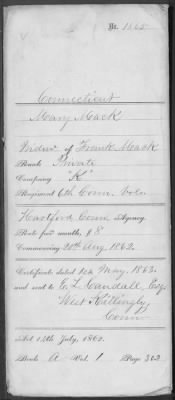 No. 1865
Connecticut
Mary Mack
Widow of Frank Mack
Rank Private
Company "K"
Regiment 6th Conn. Vols.
Hartford Conn Agency.
Rate per month, $8
Commencing 20th Aug 1862.
Certificate dated May, 1863.
and sent to E. L. Cundall, Esq
West Killingly,
Conn
Act 14th July, 1862.
Book A Vol. 1 Page 302